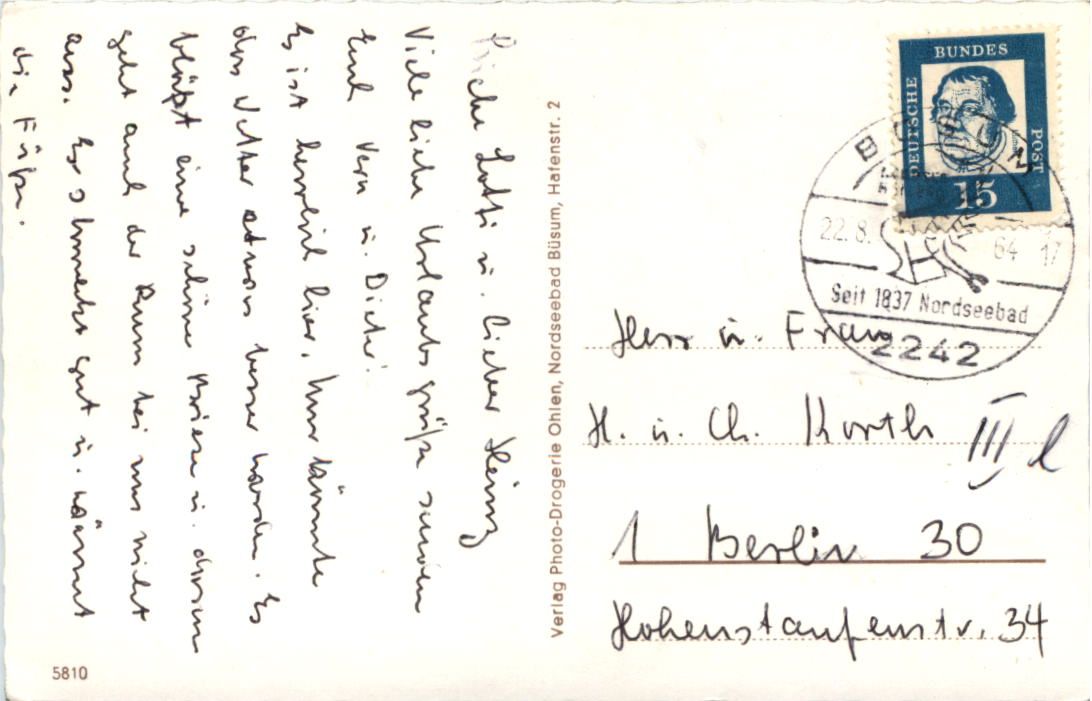 Liebe Lotti u. lieber Heinz
Viele liebe Urlaubsgrüße senden
Euch Vera u. Dieter.
Es ist herrlich hier. Nur könnte
das Wetter etwas besser werden. Es
bläßt eine schöne Briese u. darum
geht auch der Rum bei uns nicht
aus. Er schmeckt gut u. wärmt
die Füße.
5810
Verlag Photo-Drogerie Ohlen, Nordseebad Büsum, Hafenstr. 2
DEUTSCHE BUNDES POST
15
22.8. 64 17
Seit 1837 Nordseebad
2242
Herr u. Frau
H. u. Ch. Korth
III l
1 Berlin 30
Hohenstaufenstr. 34